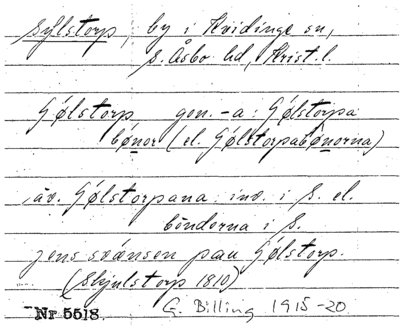 Sylstorp, by i Kvidinge sn,
S. Åsbo hd, Krist. l.
Gølstorp, gen. -a: Gølstorpa
bønor (el. Gølstorpabønorna)
äv. Gølstorpana: inv. i S. el.
bönderna i S.
jens svänsen pau Gølstorp.
(Skjulstorp 1810)
Nr 5518. G. Billing 1915-20